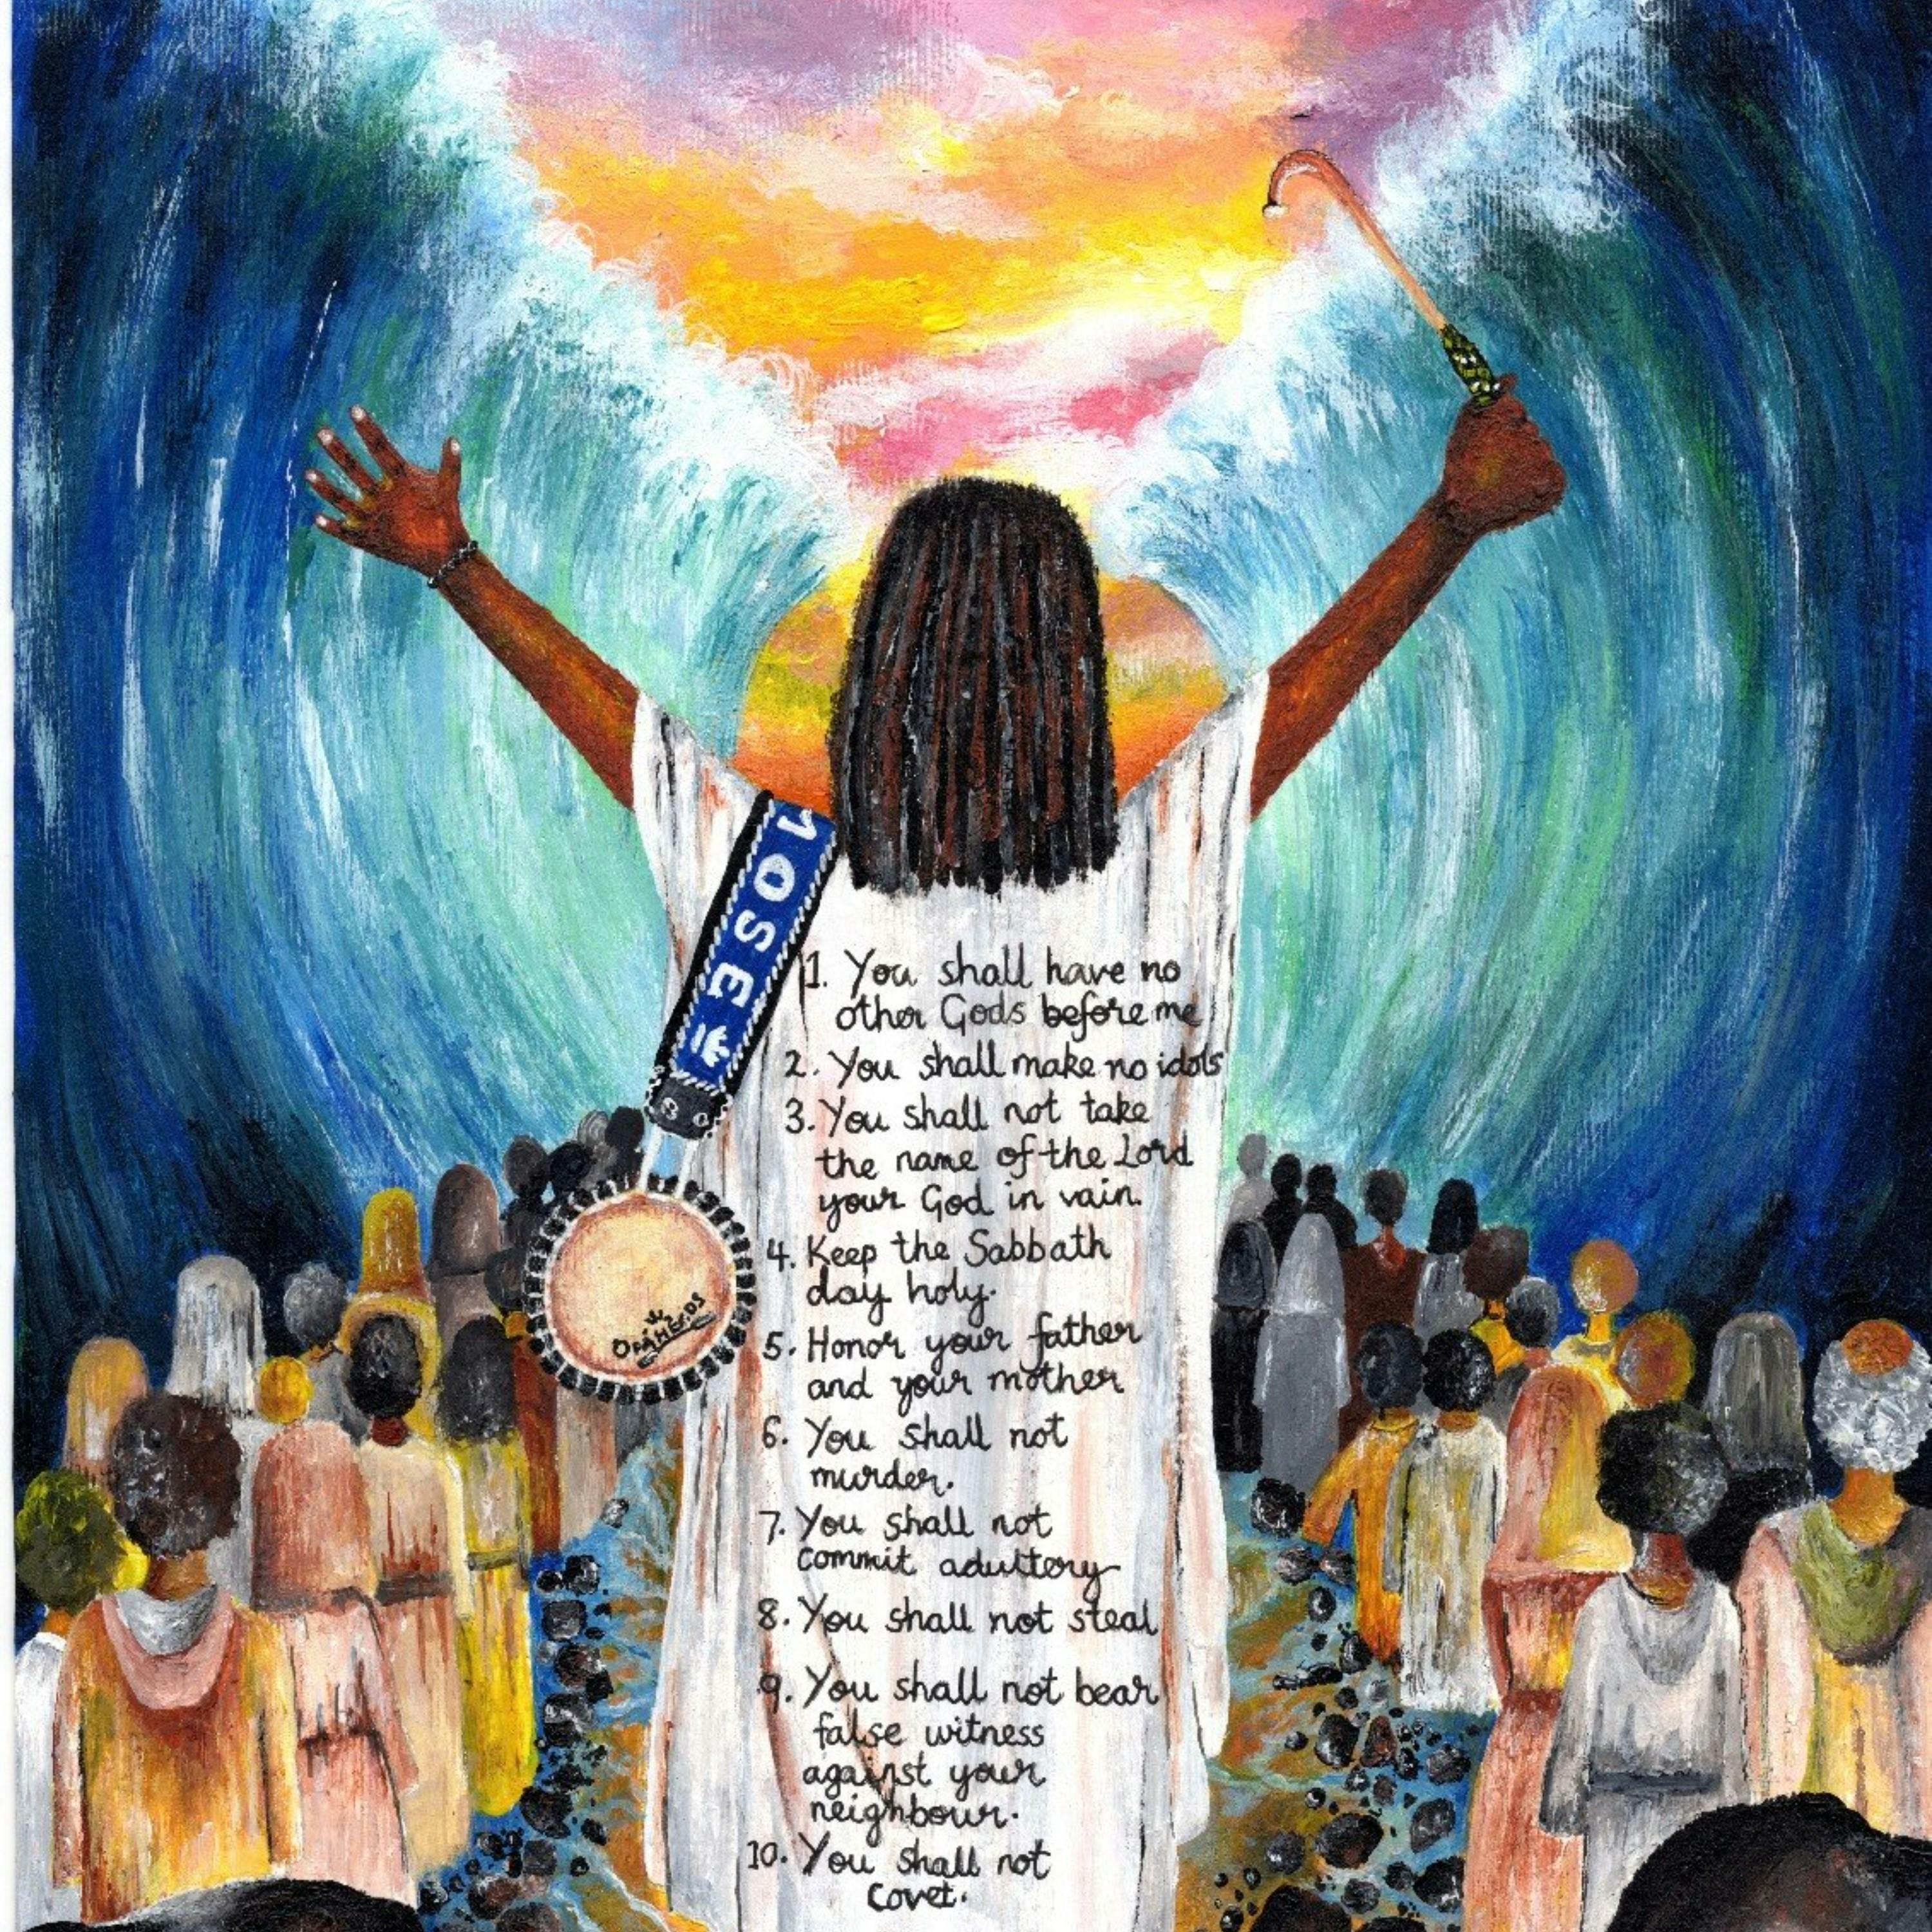 MOSE
1. You shall have no
other Gods before me
2. You shall make no idols
3. You shall not take
the name of the Lord
your God in vain.
4. Keep the Sabbath
day holy.
5. Honor your father
and your mother
6. You shall not
murder.
7. You shall not
commit adultery
8. You shall not steal
9. You shall not bear
false witness
against your
neighbour.
10. You shall not
Covet.